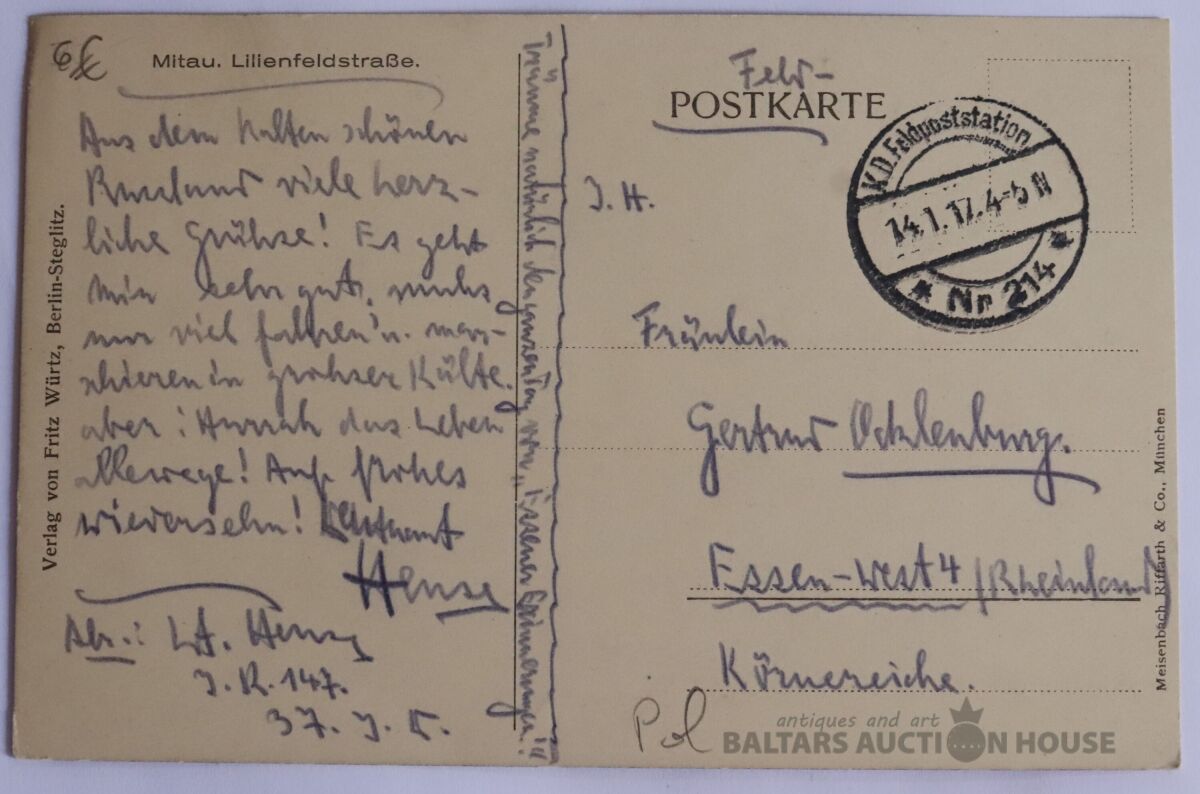 Mitau. Lilienfeldstraße.
Aus dem kalten schönen
Russland viele herz-
liche Grühse! Es geht
mir sehr gut, muhs
nur viel fahren u. mar-
schieren in grohser Kälte.
aber: Hurrah das Leben
allewege! Auf frohes
wiedersehn! Leutnant
Hense
Abs.: Lt. Hense
J. R. 147.
37. J. D.
Träume natürlich den ganzen Tag von „Essener Erinnerungen"!!
Verlag von Fritz Würtz, Berlin-Steglitz.
Feld-
POSTKARTE
K.D. Feldpoststation
14.1.17. 4-5 N
* Nr 214 *
J. H.
Fräulein
Gertrud Ocklenburg.
Essen-West 4 /Rheinland
Körnereiche.
Pol
Meisenbach Riffarth & Co., München
antiques and art
BALTARS AUCTION HOUSE